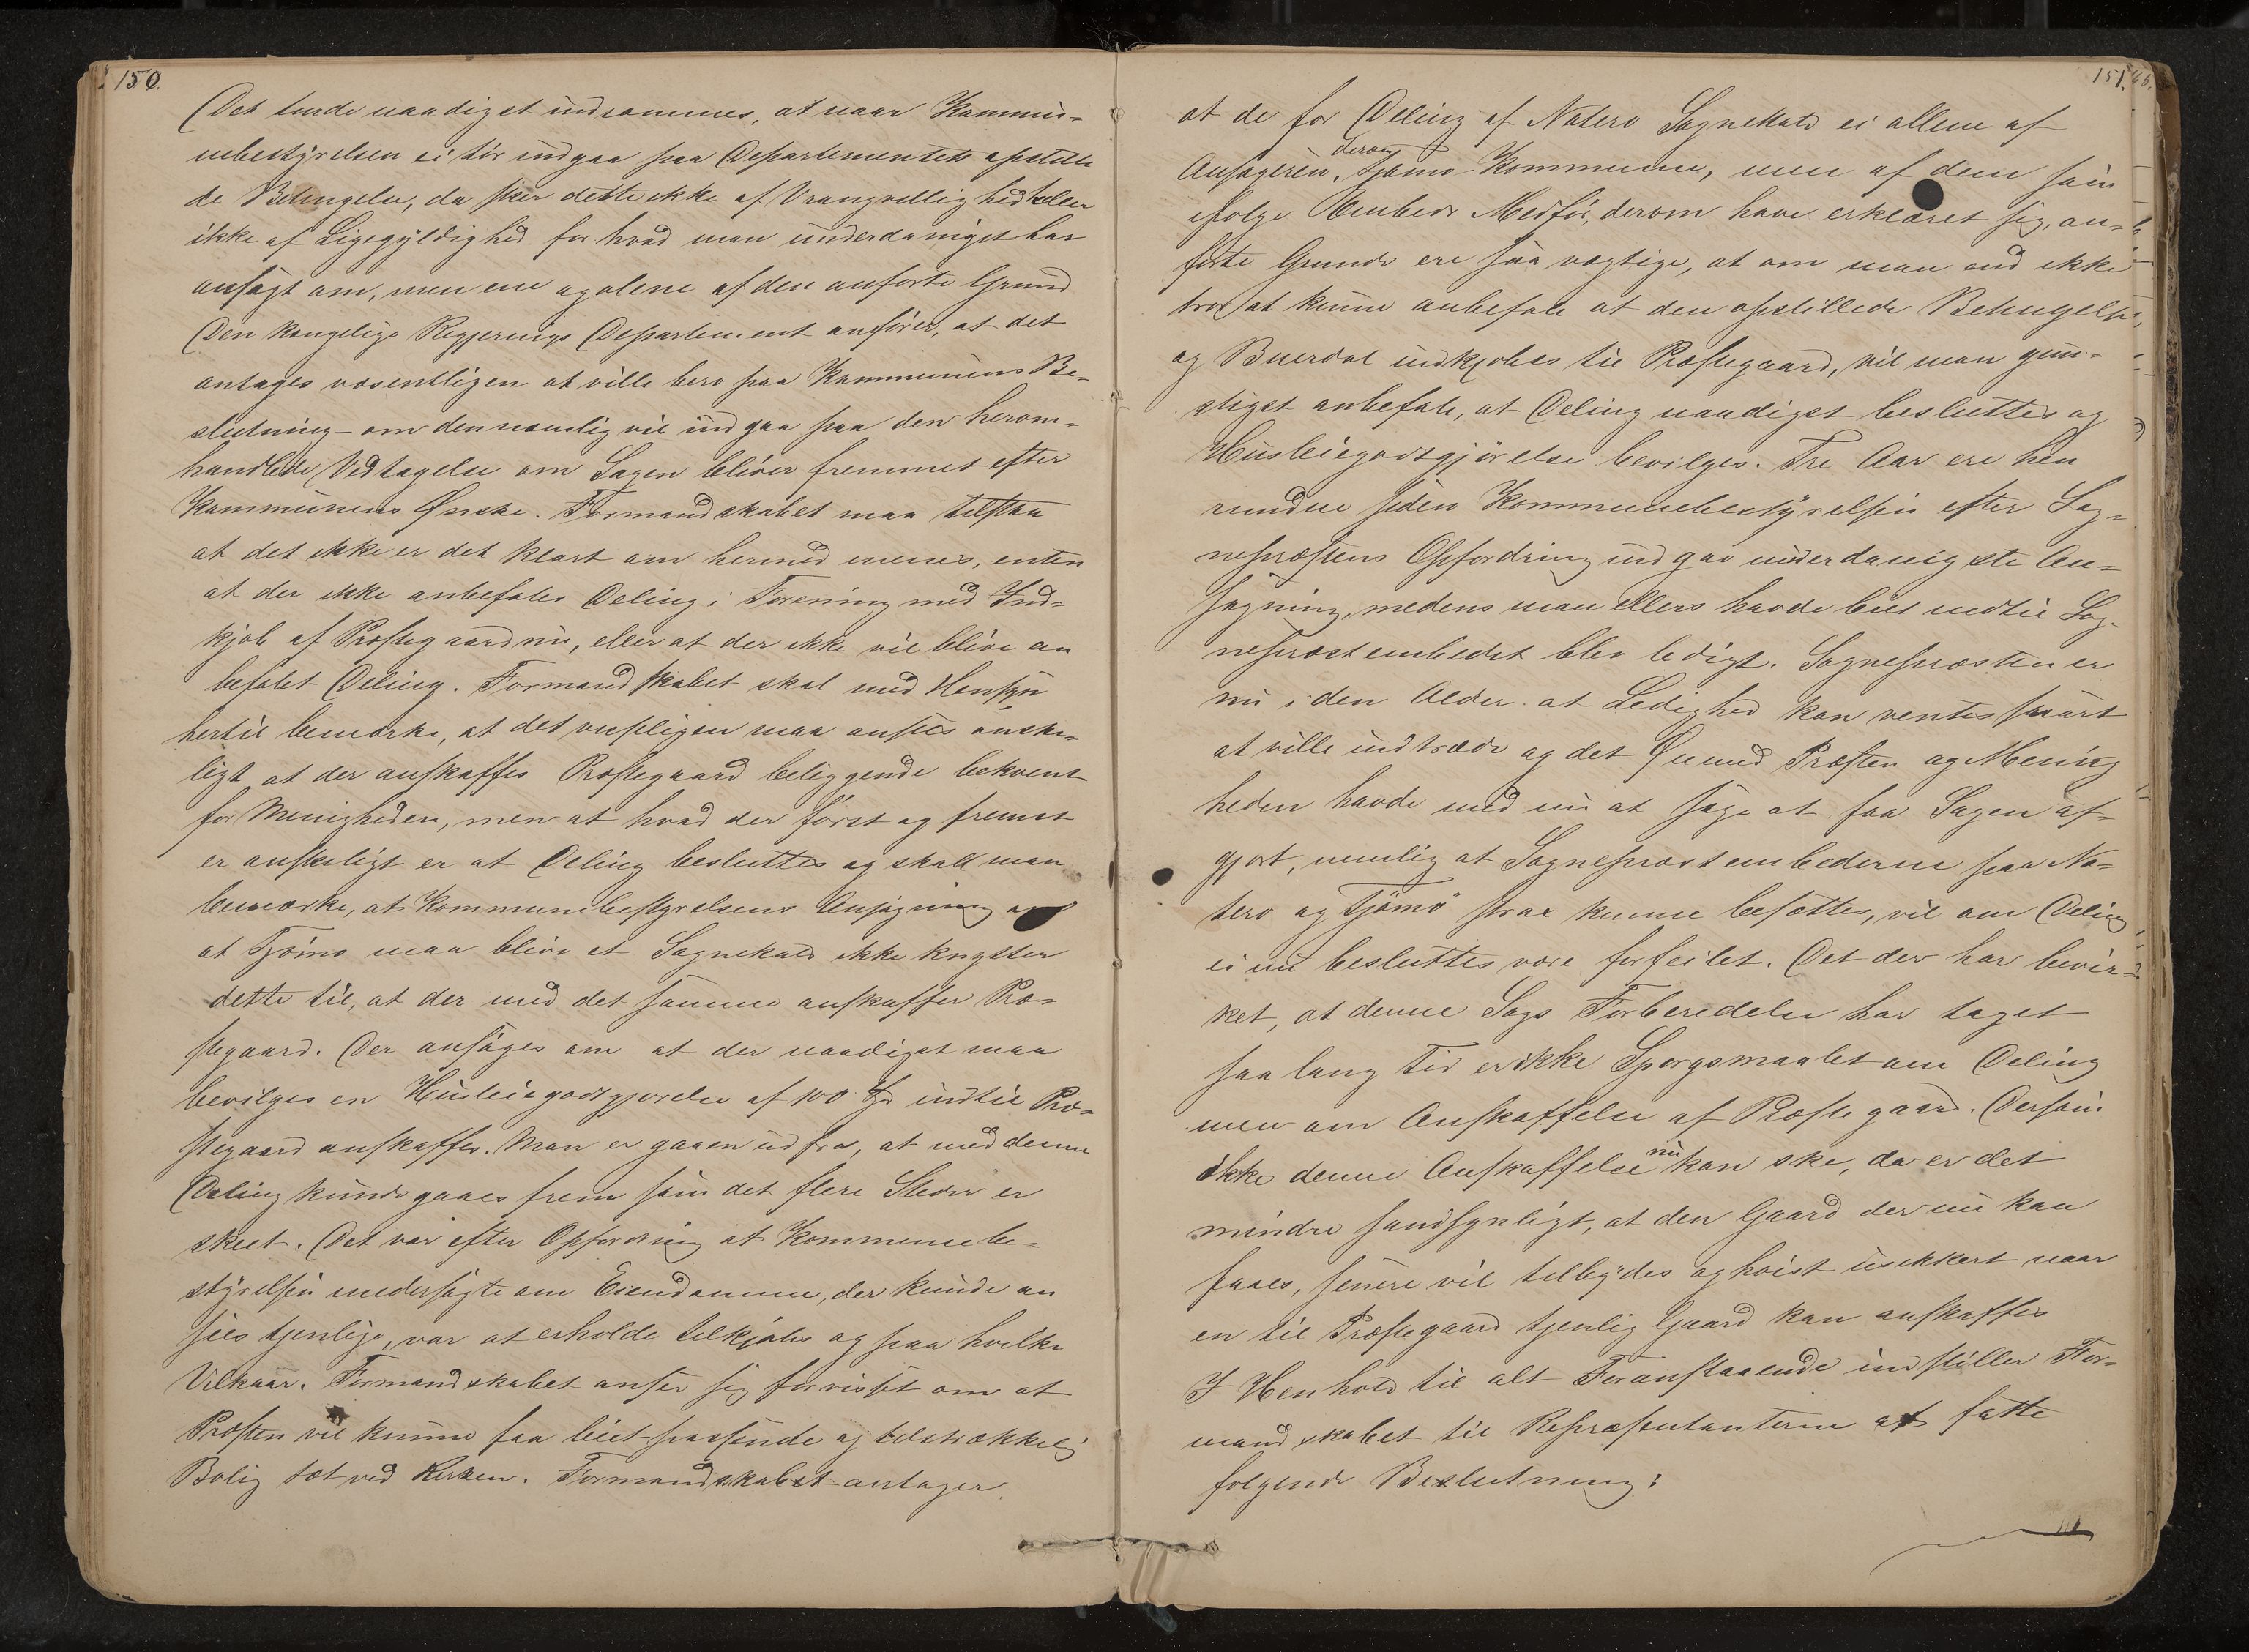 150.
Det turde naadigst indrømmes, at naar Kommu-
nebestyrelsen ei tør indgaa paa Departementets opstille
de Betingelse, da sker dette ikke af Vrangvillighed heller
ikke af Ligegyldighed for hvad man underdanigst har
ansøgt om, men ene og alene af den anførte Grund
Den kongelige Regjerings Departement anfører, at det
antages væsentligen at ville bero paa Kommunens Be-
slutning – om den nemlig vil indgaa paa den herom-
handlede Vedtagelse om Sagen bliver fremmet efter
Kommunens Ønske. Formandskabet maa tilstaa
at det ikke er det klart om hermed menes, enten
at der ikke anbefales Deling i Forening med Ind-
kjøb af Præstegaard nu, eller at der ikke vil blive an
befalet Deling. Formandskabet skal med Hensyn
hertil bemærke, at det visseligen maa ansees ønske-
ligt at der anskaffes Præstegaard beliggende bekvemt
for Menigheden, men at hvad der først og fremst
er ønskeligt er at Deling besluttes og skal man
bemærke, at Kommunebestyrelsens Ansøgning om
at Tjømø maa blive et Sognekald ikke knytter
dette til, at der med det samme anskaffes Præ-
stegaard. Der ansøges om at der naadigst maa
bevilges en Husleiegodtgjørelse af 100 Spd indtil Præ-
stegaard anskaffes. Man er gaaen ud fra, at med denne
Deling kunde gaaes frem som det flere Steder er
skeet. Det var efter Opfordring at Kommunebe-
styrelsen undersøgte om Eiendomme, der kunde an
sees tjenlige, var at erholde tilkjøbs og paa hvilke
Vilkaar. Formandskabet anser sig forvisset om at
Præsten vil kunne faa leiet passende og tilstrækkelig
Bolig tæt ved Kirken. Formandskabet antager
151.
at de for Deling af Nøterø Sognekald ei allene af
Ansøgeren, Tjømø Kommune, men af dem som
derom
ifølge Embeds Medfør, derom have erklæret sig, an-
førte Grunde ere saa vægtige, at om man end ikke
tror at kunne anbefale at den opstillede Betingelse,
og Buerdal indkjøbes til Præstegaard, vil man gun-
stigst anbefale, at Deling naadigst besluttes og
Husleiegodtgjørelse bevilges. Tre Aar ere hen
rundne siden Kommunebestyrelsen efter Sog-
nepræstens Opfordring indgav underdanigste An-
søgning, medens man ellers havde biet indtil Sog-
nepræstembedet blev ledigt. Sognepræsten er
nu i den Alder at Ledighed kan ventes snart
at ville indtræde og det Øiemed Præsten og Menig
heden havde med nu at søge at faa Sagen af-
gjort, nemlig at Sognepræstembederne paa Nø-
terø og Tjømø strax kunne besættes, vil om Deling
ei nu besluttes være forfeilet. Det der har bevir-
ket, at denne Sags Forberedelse har taget
saa lang Tid er ikke Spørgsmaalet om Deling
men om Anskaffelse af Præstegaard. Dersom
ikke denne Anskaffelse nu kan ske, da er det
mindre sandsynligt, at den Gaard der nu kan
faaes, senere vil tilbydes og høist usikkert naar
en til Præstegaard tjenlig Gaard kan anskaffes
I Henhold til alt Foranstaaende indstiller For-
mandskabet til Repræsentanterne at fatte
følgende Beslutning: